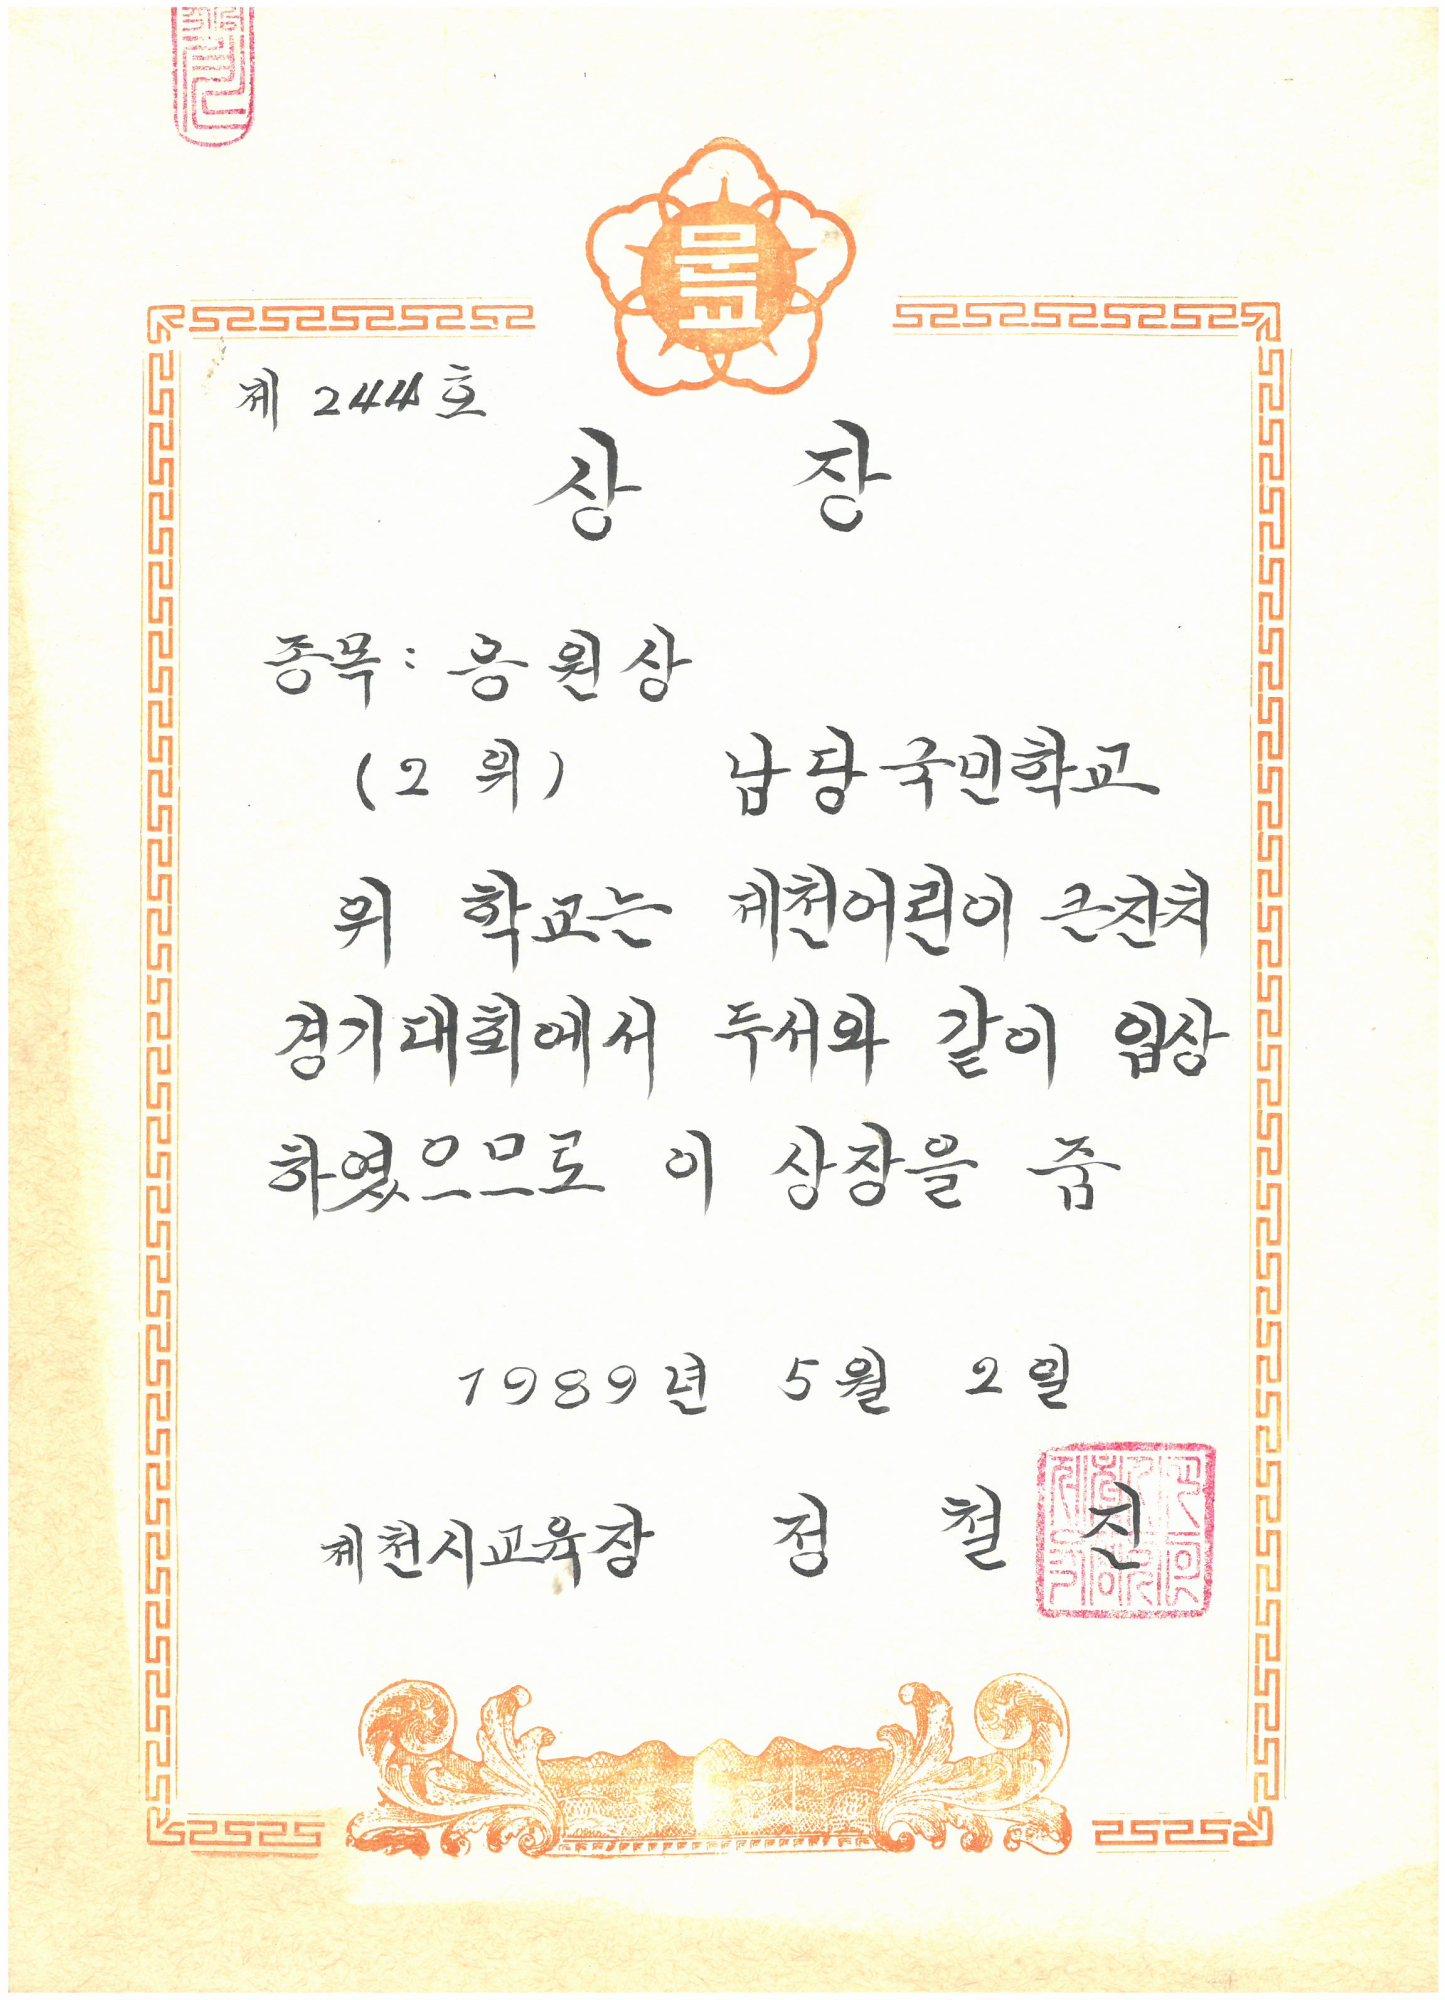 문교
제 244 호
상 장
종목 : 응원상
(2 위) 남당국민학교
위 학교는 제천어린이 큰잔치
경기대회에서 두서와 같이 입상
하였으므로 이 상장을 줌
1989년 5월 2일
제천시교육장 정 철 진